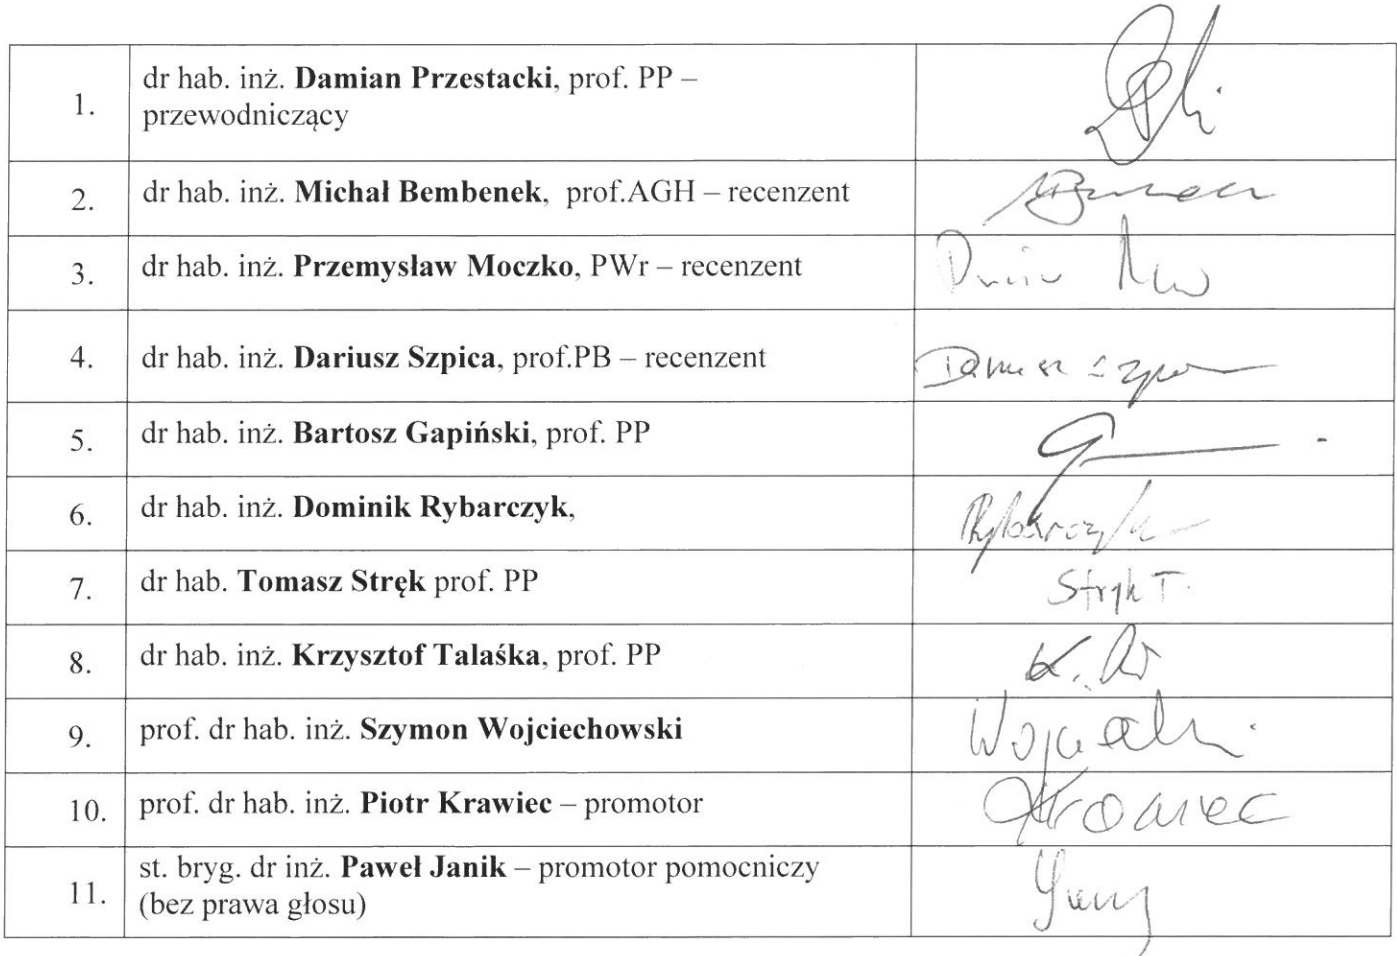 1. dr hab. inż. Damian Przestacki, prof. PP –
przewodniczący
2. dr hab. inż. Michał Bembenek, prof.AGH – recenzent
3. dr hab. inż. Przemysław Moczko, PWr – recenzent
4. dr hab. inż. Dariusz Szpica, prof.PB – recenzent
5. dr hab. inż. Bartosz Gapiński, prof. PP
6. dr hab. inż. Dominik Rybarczyk, Rybarczyk
7. dr hab. Tomasz Stręk prof. PP Stręk T.
8. dr hab. inż. Krzysztof Talaśka, prof. PP
9. prof. dr hab. inż. Szymon Wojciechowski
10. prof. dr hab. inż. Piotr Krawiec – promotor Krawiec
11. st. bryg. dr inż. Paweł Janik – promotor pomocniczy
(bez prawa głosu)